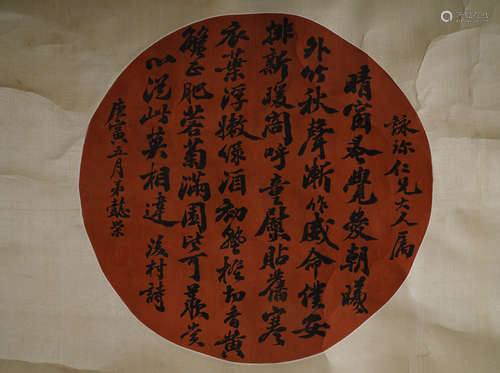 詠珎仁兄大人属
晴窗蚤覺愛朝曦
外竹秋聲漸作威命僕安
排新暖閣呼童熨貼舊寒
衣葉浮嫩緑酒初熟橙切香黄
蟹正肥蓉菊滿園皆可羨賞
心從此莫相違 後村詩
庚寅五月弟懿榮